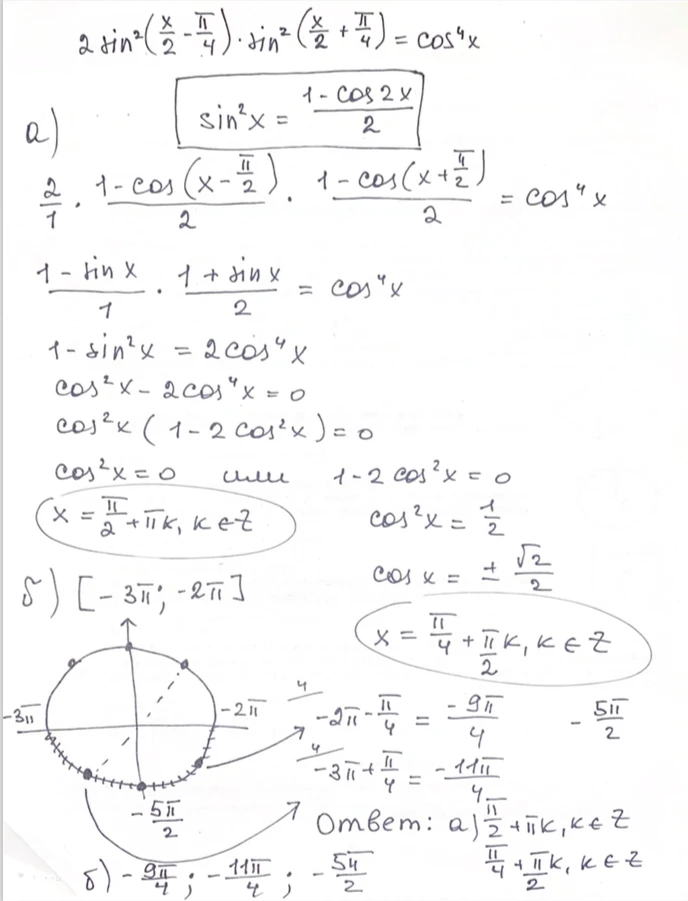 2 sin²(x/2 - π/4) · sin²(x/2 + π/4) = cos⁴x
а) sin²x = (1 - cos 2x)/2
2/1 · (1 - cos(x - π/2))/2 · (1 - cos(x + π/2))/2 = cos⁴x
(1 - sin x)/1 · (1 + sin x)/2 = cos⁴x
1 - sin²x = 2cos⁴x
cos²x - 2cos⁴x = 0
cos²x (1 - 2cos²x) = 0
cos²x = 0 или 1 - 2cos²x = 0
x = π/2 + πk, k ∈ Z
cos²x = 1/2
cos x = ± √2/2
x = π/4 + π/2 k, k ∈ Z
б) [-3π; -2π]
-3π
-2π
-5π/2
4/ -2π - π/4 = -9π/4
-5π/2
4/ -3π + π/4 = -11π/4
Ответ: а) π/2 + πk, k ∈ Z
π/4 + π/2 k, k ∈ Z
б) -9π/4; -11π/4; -5π/2